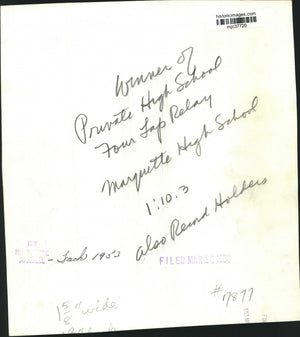 historicimages.com
mjc37720
Winner of
Private High School
Four Lap Relay
Marquette High School
1:10.3
also Record Holders
FILED MAR
1953
#7877
1 5/8" wide